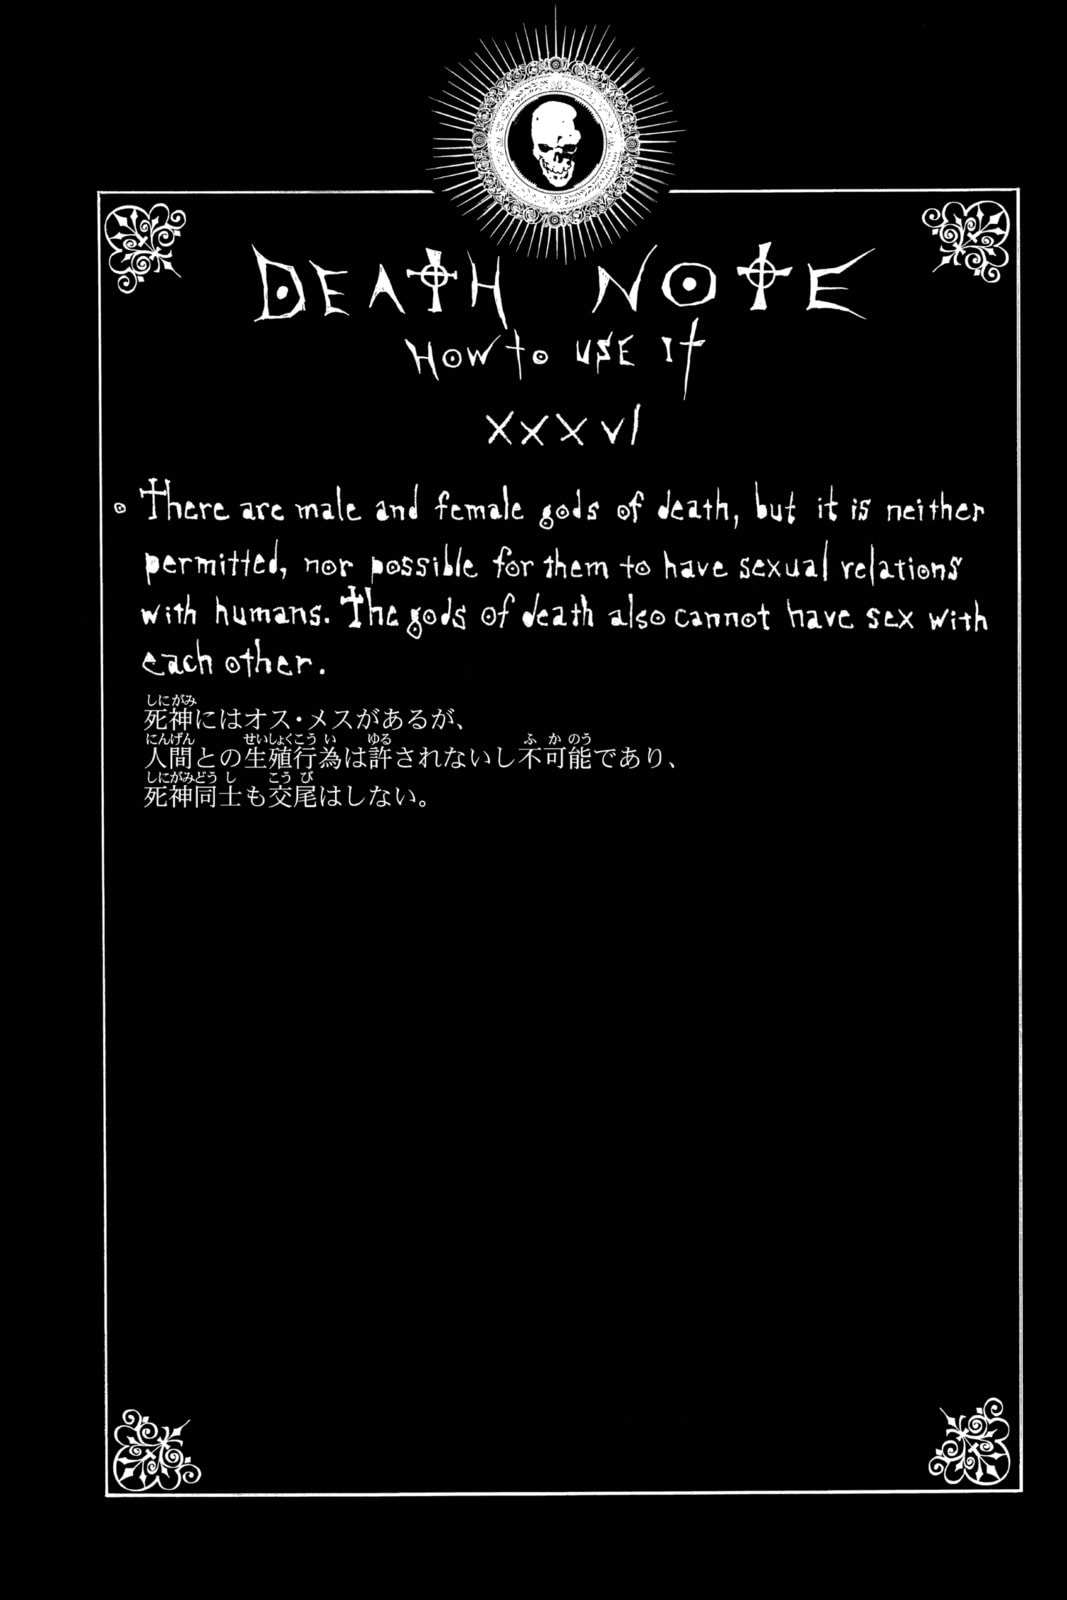 DEATH NOTE
HOW to USE It
XXXVI
There are male and female gods of death, but it is neither
permitted, nor possible for them to have sexual relations
with humans. The gods of death also cannot have sex with
each other.
しにがみ
死神にはオス・メスがあるが、
にんげん せいしょくこうい ゆる ふかのう
人間との生殖行為は許されないし不可能であり、
しにがみどうし こうび
死神同士も交尾はしない。